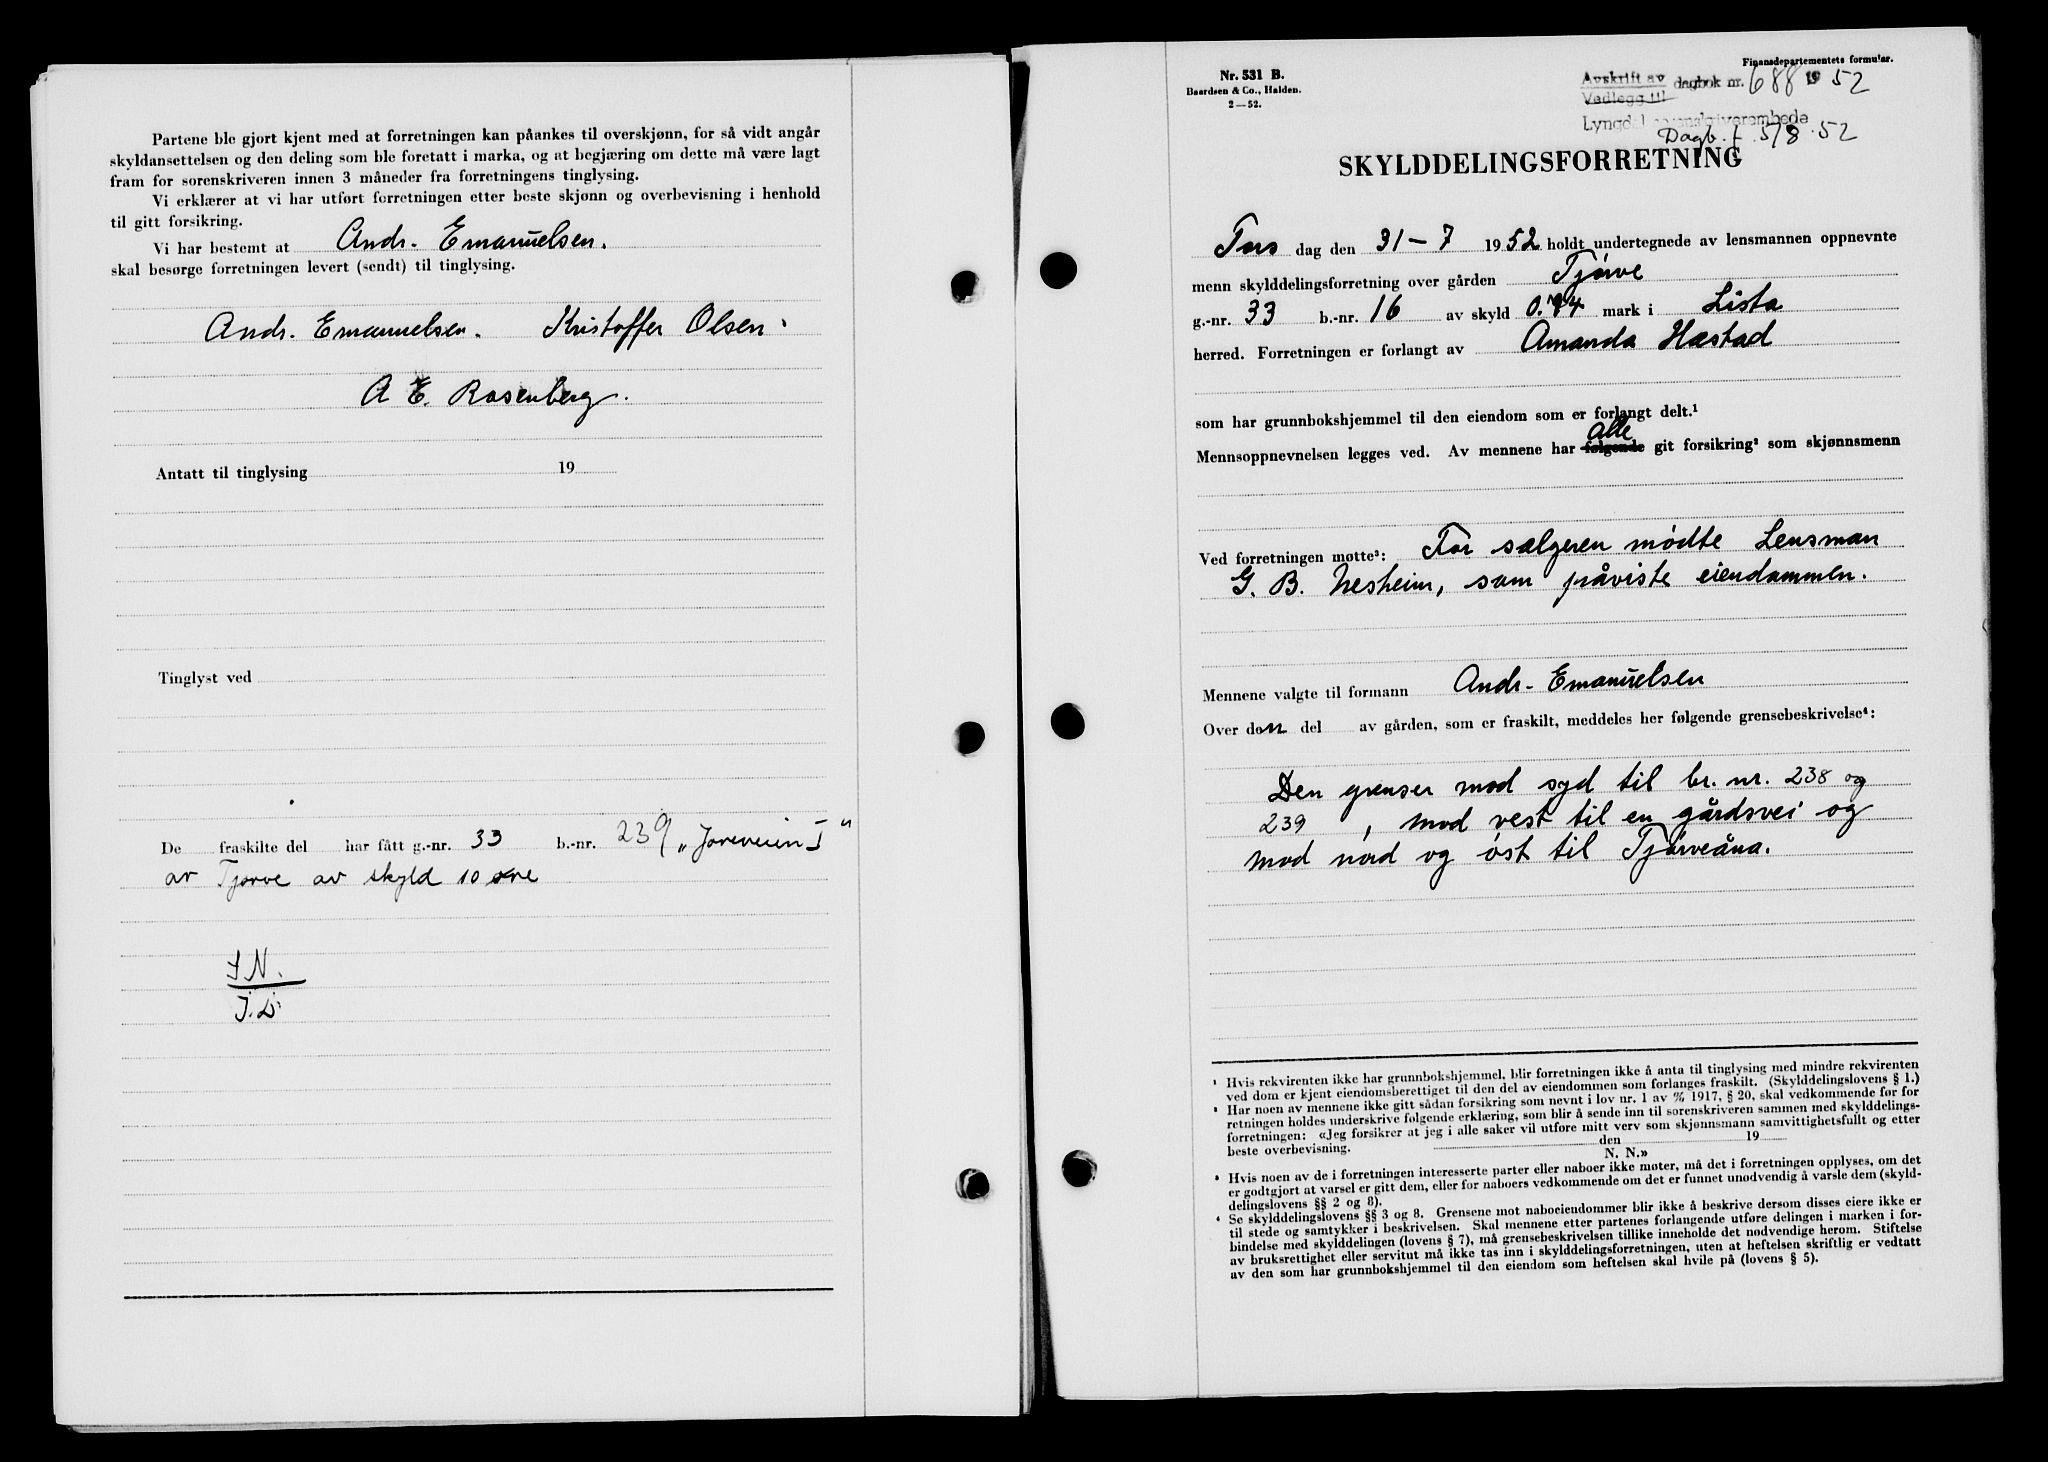 Partene ble gjort kjent med at forretningen kan påankes til overskjønn, for så vidt angår
skyldansettelsen og den deling som ble foretatt i marka, og at begjæring om dette må være lagt
fram for sorenskriveren innen 3 måneder fra forretningens tinglysing.
Vi erklærer at vi har utført forretningen etter beste skjønn og overbevisning i henhold
til gitt forsikring.
Vi har bestemt at Andr. Emanuelsen.
skal besørge forretningen levert (sendt) til tinglysing.
Andr. Emanuelsen. Kristoffer Olsen.
A E. Rosenberg.
Antatt til tinglysing 19
Tinglyst ved
De fraskilte del har fått g.-nr. 33 b.-nr. 239 „Joreveien I“
av Tjørve av skyld 10 øre
S N.
J.D.
Nr. 531 B.
Baardsen & Co., Halden.
2—52.
Finansdepartementets formular.
Avskrift av dagbok nr. 688 1952
Vedlegg til
Lyngdal sorenskriverembede
Dagb. f. 5/8.52
SKYLDDELINGSFORRETNING
Tors dag den 31-7 1952 holdt undertegnede av lensmannen oppnevnte
menn skylddelingsforretning over gården Tjørve
g.-nr. 33 b.-nr. 16 av skyld mark i Lista
herred. Forretningen er forlangt av Amanda Hæstad
som har grunnbokshjemmel til den eiendom som er forlangt delt.¹
alle
Mennsoppnevnelsen legges ved. Av mennene har følgende git forsikring² som skjønnsmenn
Ved forretningen møtte³: For sælgeren mødte Lensman
G. B. Nesheim, som påviste eiendommen.
Mennene valgte til formann Andr. Emanuelsen
Over den del av gården, som er fraskilt, meddeles her følgende grensebeskrivelse⁴:
Den grenser mod syd til br. nr. 238 og
239 , mod vest til en gårdsvei og
mod nord og øst til Tjørveåna.
¹ Hvis rekvirenten ikke har grunnbokshjemmel, blir forretningen ikke å anta til tinglysing med mindre rekvirenten
ved dom er kjent eiendomsberettiget til den del av eiendommen som forlanges fraskilt. (Skylddelingslovens § 1.)
² Har noen av mennene ikke gitt sådan forsikring som nevnt i lov nr. 1 av 1917, § 20, skal vedkommende før for
retningen holdes underskrive følgende erklæring, som blir å sende inn til sorenskriveren sammen med skylddelings-
forretningen: «Jeg forsikrer at jeg i alle saker vil utføre mitt verv som skjønnsmann samvittighetsfullt og etter
beste overbevisning. den 19
N. N.»
³ Hvis noen av de i forretningen interesserte parter eller naboer ikke møter, må det i forretningen opplyses, om det
er godtgjort at varsel er gitt dem, eller for naboers vedkommende om det er funnet unødvendig å varsle dem (skyld-
delingslovens §§ 2 og 8).
⁴ Se skylddelingslovens §§ 3 og 8. Grensene mot naboeiendommer blir ikke å beskrive dersom disses eiere ikke er
til stede og samtykker i beskrivelsen. Skal mennene etter partenes forlangende utføre delingen i marken i for-
bindelse med skylddelingen (lovens § 7), må grensebeskrivelsen tillike inneholde det nødvendige herom. Stiftelse
av bruksrettighet eller servitut må ikke tas inn i skylddelingsforretningen, uten at heftelsen skriftlig er vedtatt
av den som har grunnbokshjemmel til den eiendom som heftelsen skal hvile på (lovens § 5).